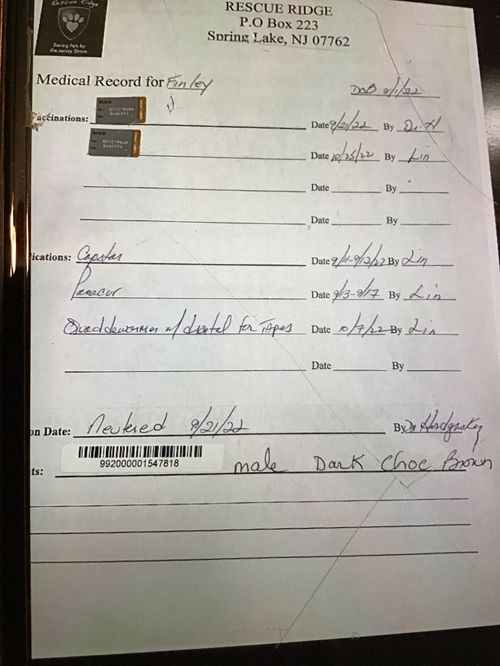 Rescue Ridge
Saving Pets by
the Jersey Shore
RESCUE RIDGE
P.O Box 223
Spring Lake, NJ 07762
Medical Record for Finley
DOB 2/1/22
accinations:
Date 9/21/22 By Dr H
Date 10/25/22 By Lin
Date By
Date By
ications: Capstar Date 9/11-9/12/22 By Lin
Panacur Date 9/13-9/17 By Lin
Quad dewormer w/ for Tapes Date 10/7/22 By Lin
Date By
on Date: Neutered 9/21/22 By Dr
992000001547818
ts: male Dark Choc Brown